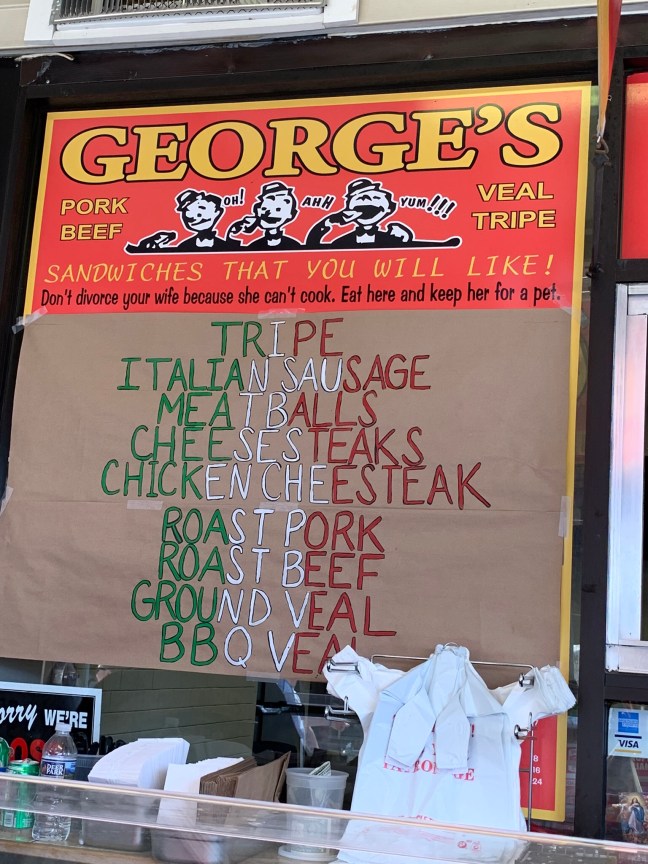 GEORGE'S
PORK
BEEF
OH!
AHH
YUM!!!
VEAL
TRIPE
SANDWICHES THAT YOU WILL LIKE!
Don't divorce your wife because she can't cook. Eat here and keep her for a pet.
TRIPE
ITALIAN SAUSAGE
MEATBALLS
CHEESESTEAKS
CHICKEN CHEESTEAK
ROAST PORK
ROAST BEEF
GROUND VEAL
BBQ VEAL
WE'RE
DEER
PARK
8
16
24
VISA